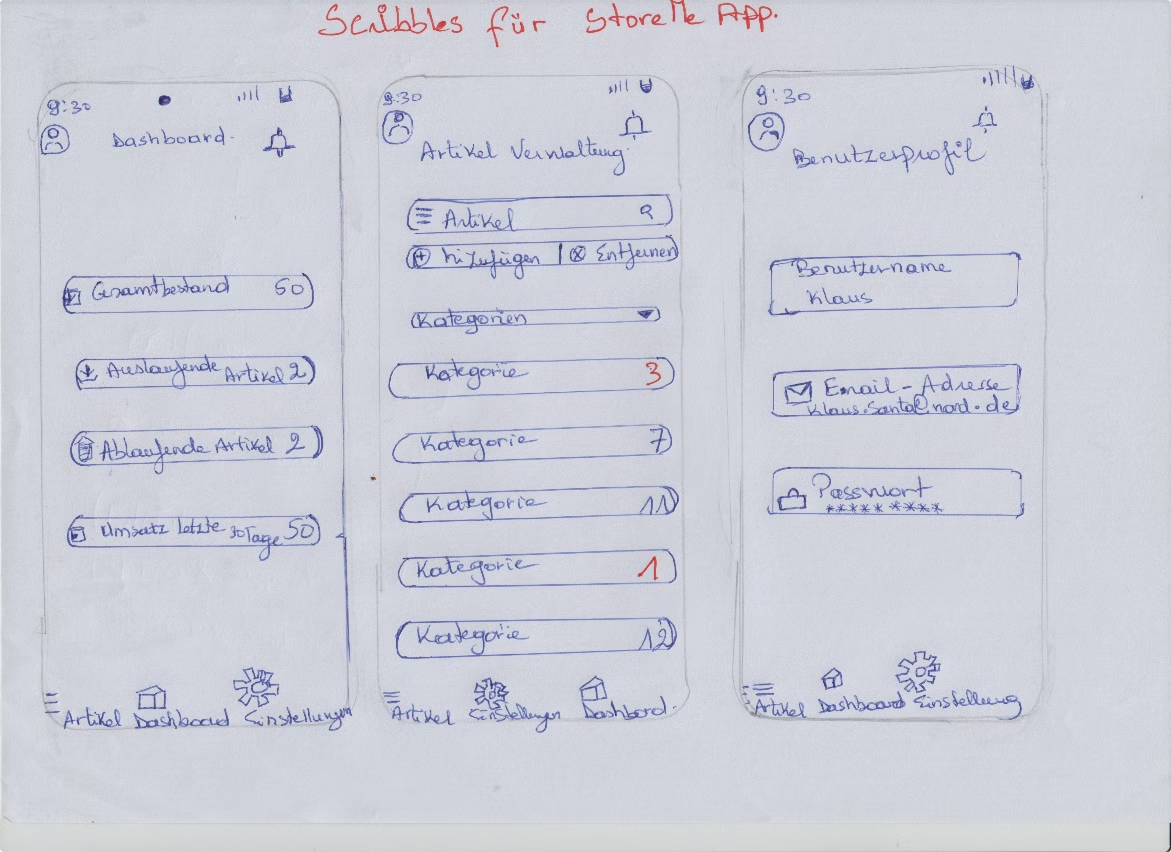 Scribbles für StoreMe App.
9:30
Dashboard.
Gesamtbestand 50
Auslaufende Artikel 2
Ablaufende Artikel 2
Umsatz letzte 30 Tage 50
Artikel Dashboard Einstellungen
9:30
Artikel Verwaltung.
Artikel
hizufügen | Entfernen
Kategorien
Kategorie 3
Kategorie 7
Kategorie 11
Kategorie 1
Kategorie 12
Artikel Einstellungen Dashbord.
9:30
Benutzerprofil
Benutzername
Klaus
Email-Adresse
Klaus.Santa@nord.de
Passwort
*********
Artikel Dashboard Einstellung